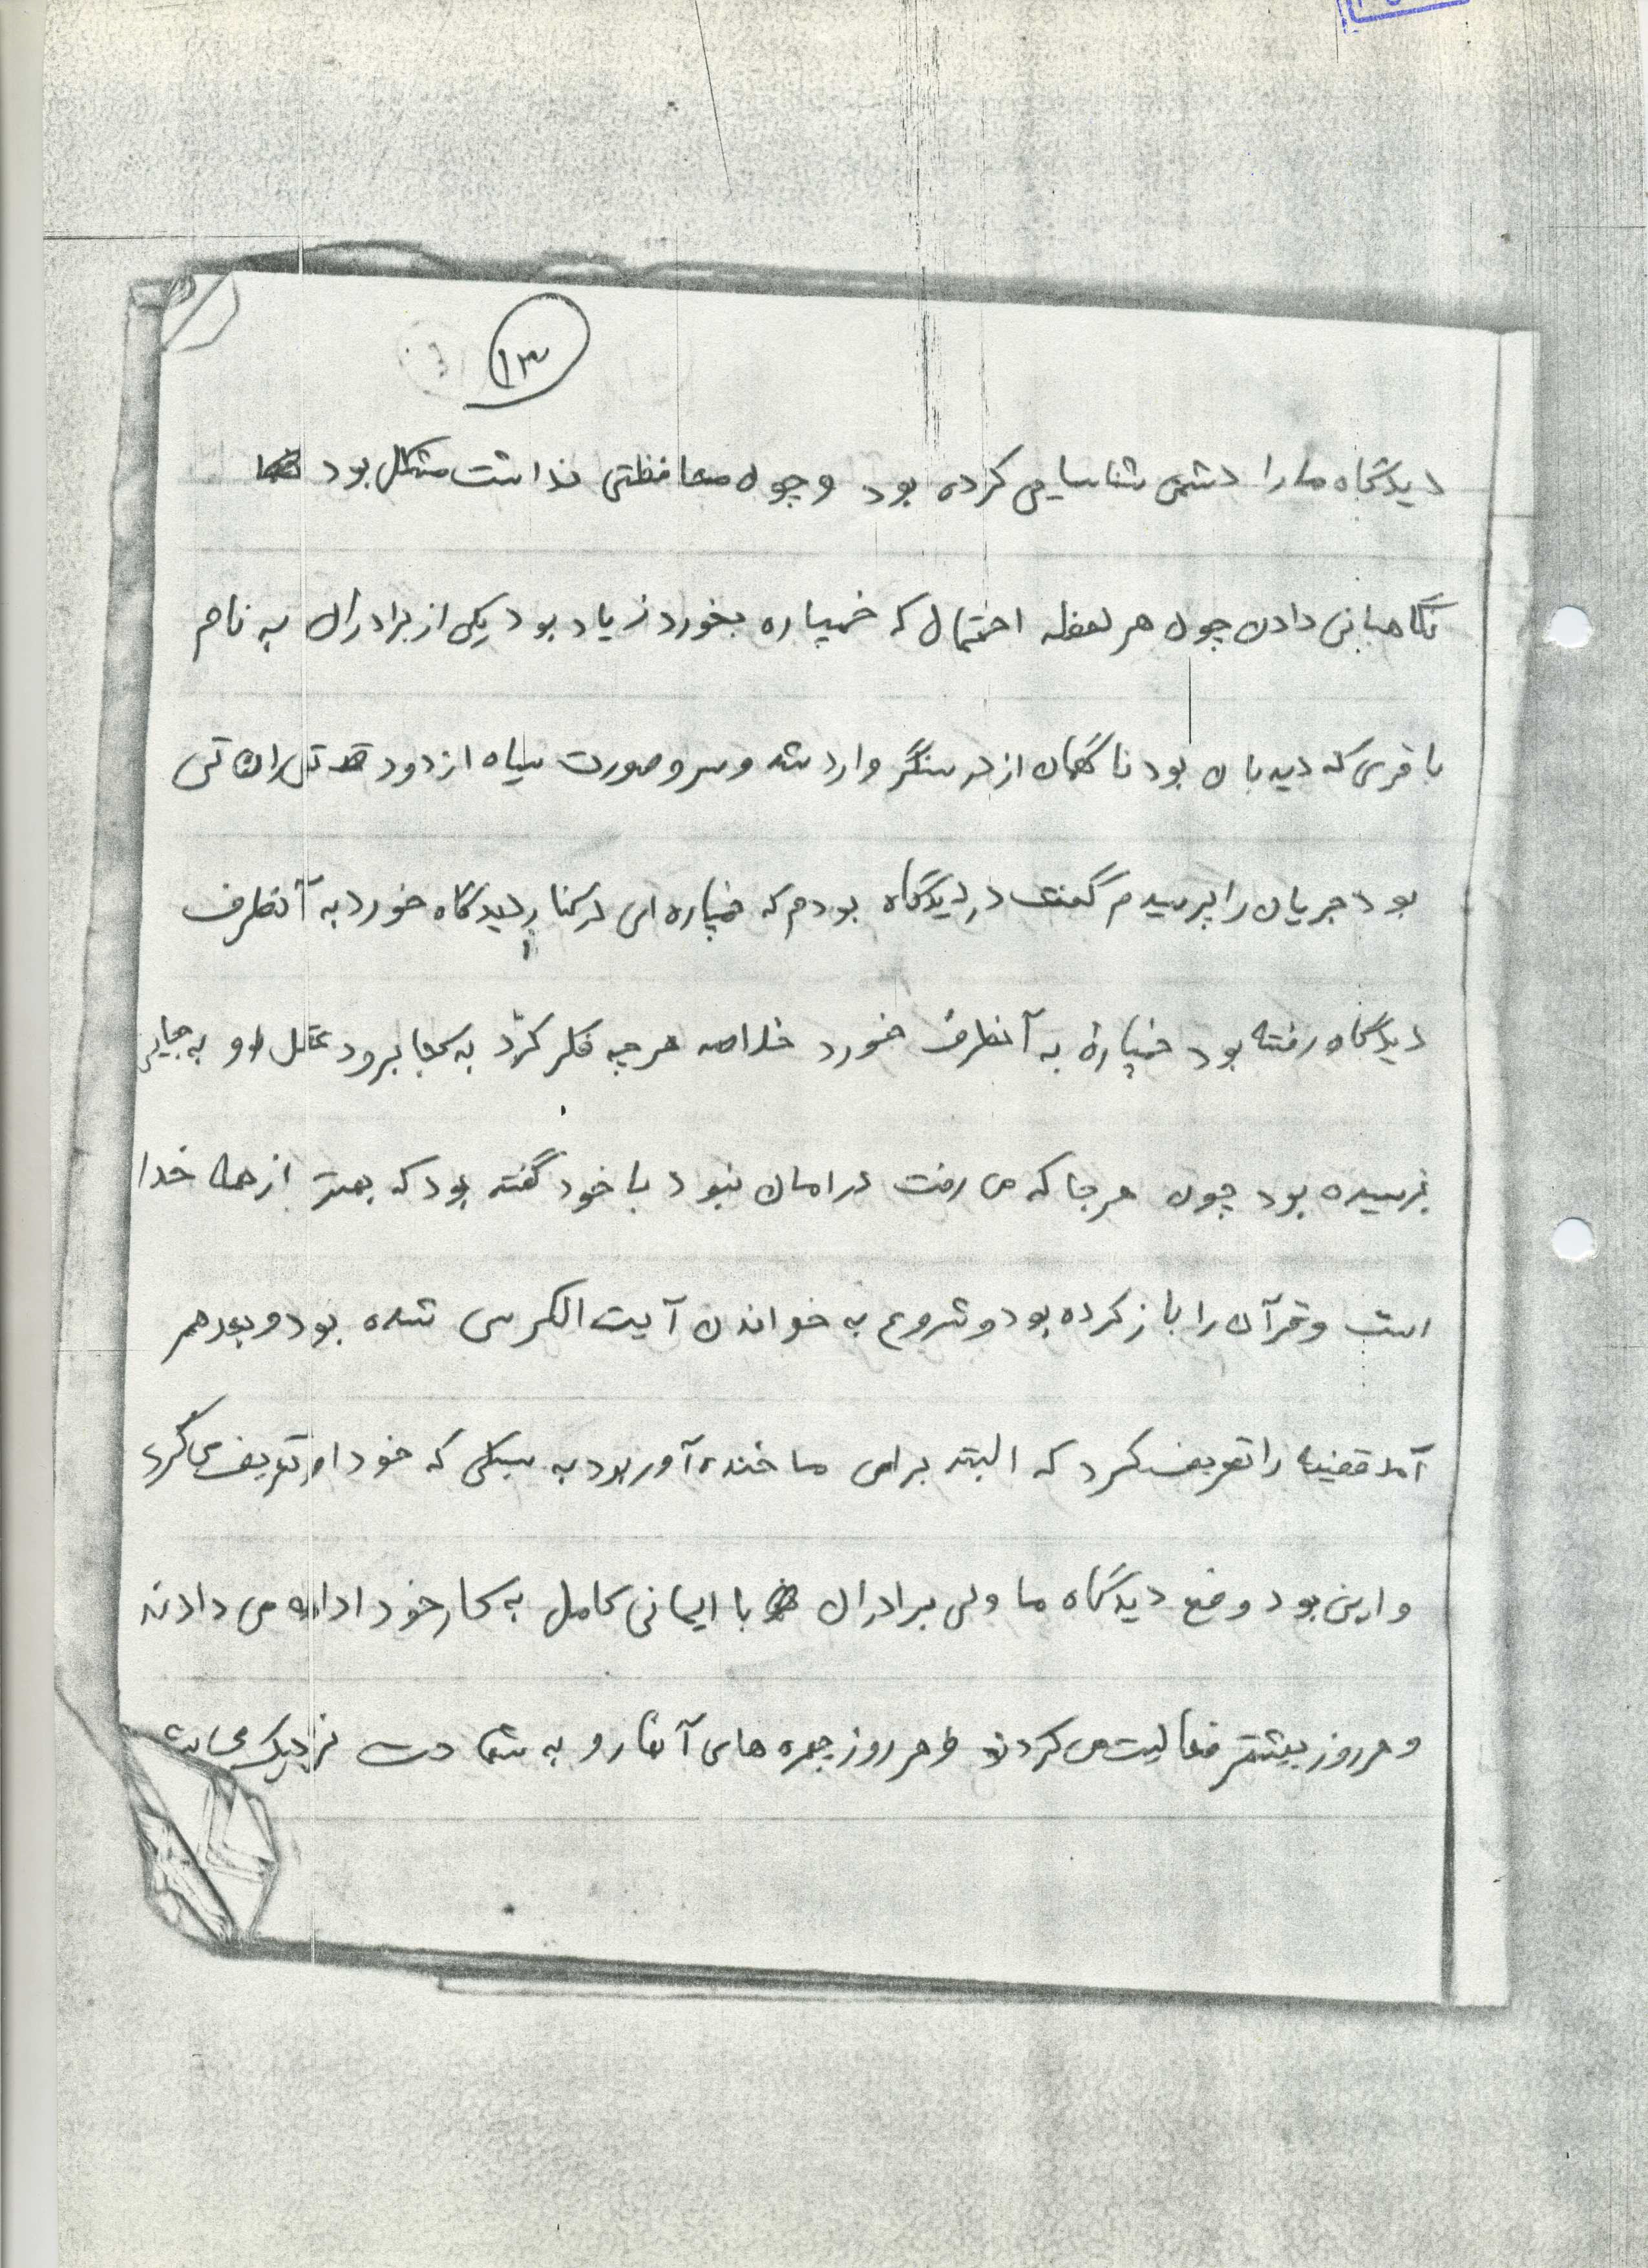 ۱۳
دیدگاه ما را دشمن شناسایی کرده بود و چون محافظتی نداشت مشکل بود
نگاهبانی دادن چون هر لحظه احتمال که خمپاره بخورد زیاد بود یکی از برادران به نام
باقری که دیدبان بود ناگهان از در سنگر وارد شد و سر و صورت سیاه از دود
بود جریان را پرسیدم گفت در دیدگاه بودم که خمپاره ای در کنار دیدگاه خورد به آنطرف
دیدگاه رفته بود خمپاره به آنطرف خورد خلاصه هر چه فکر کرد به کجا برود عقل او به جایی
نرسیده بود چون هر جا که می رفت در امان نبود با خود گفته بود که بهتر از همه خدا
است و قرآن را باز کرده بود و شروع به خواندن آیت الکرسی شده بود و بعد هم
آمد قضیه را تعریف کرد که البته برای ما خنده آور بود به سبکی که خود او تعریف می کرد
و این بود وضع دیدگاه ما ولی برادران با ایمانی کامل به کار خود ادامه می دادند
و هر روز بیشتر فعالیت می کردند و هر روز چهره های آنها رو به شهادت نزدیک